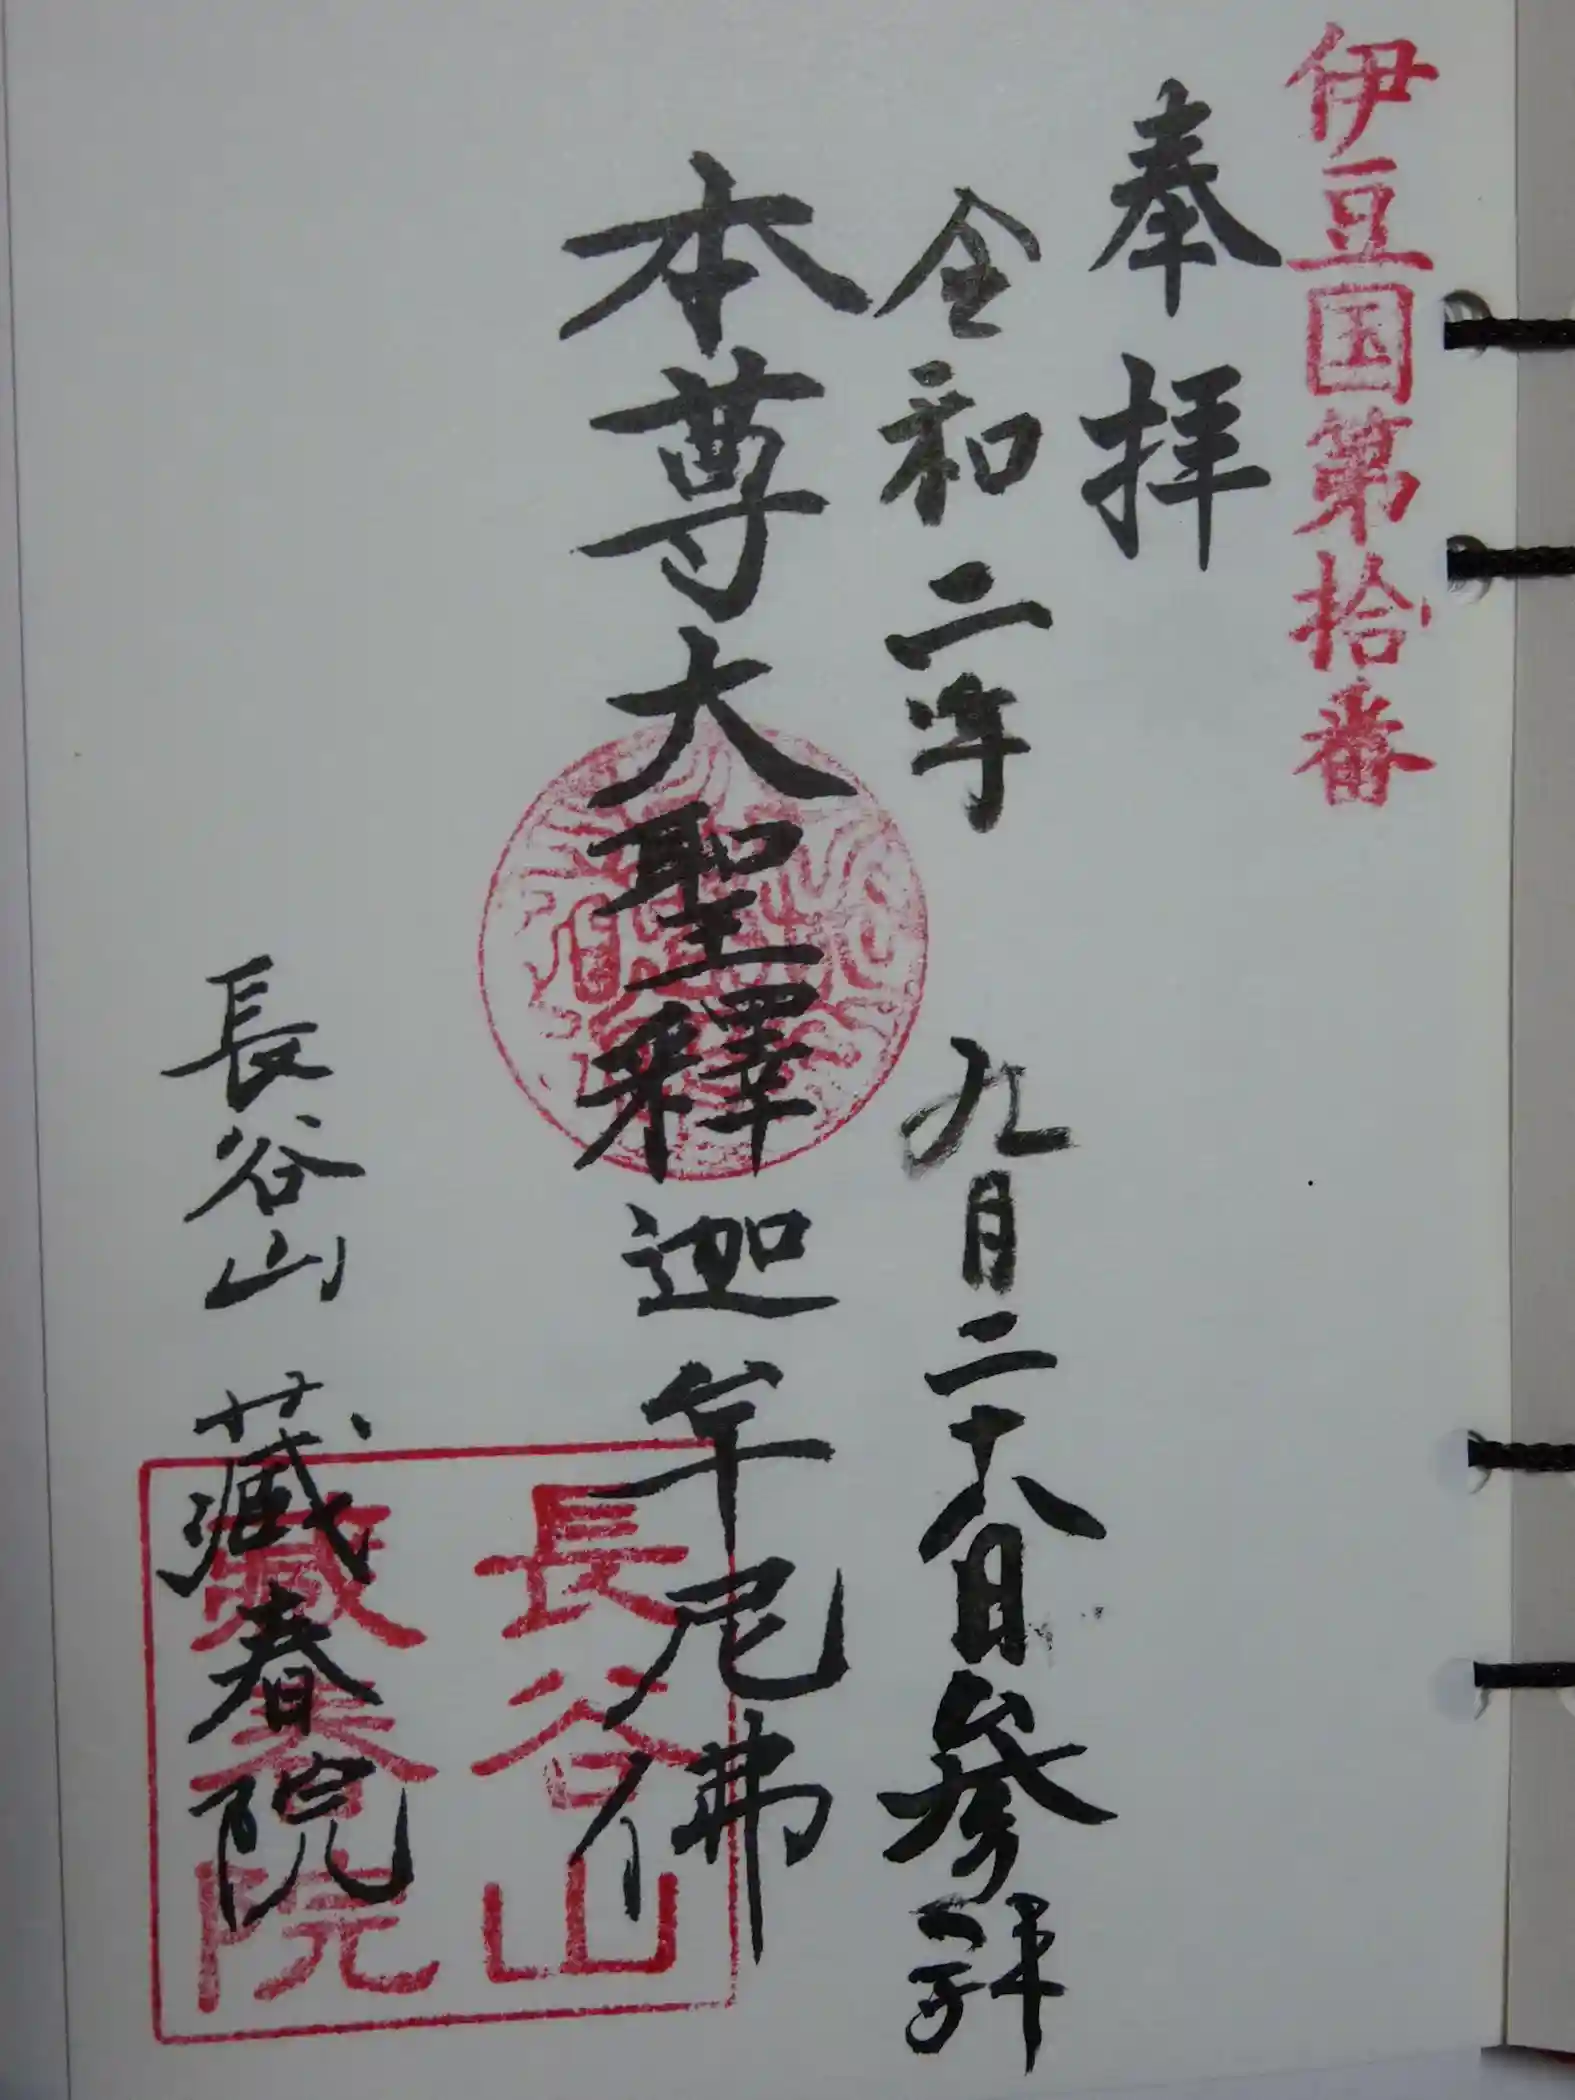 伊豆国第拾番
奉拝
令和二年 九月二十八日参拝
本尊大聖釋迦牟尼佛
長谷山 藏春院
長谷山
藏春院